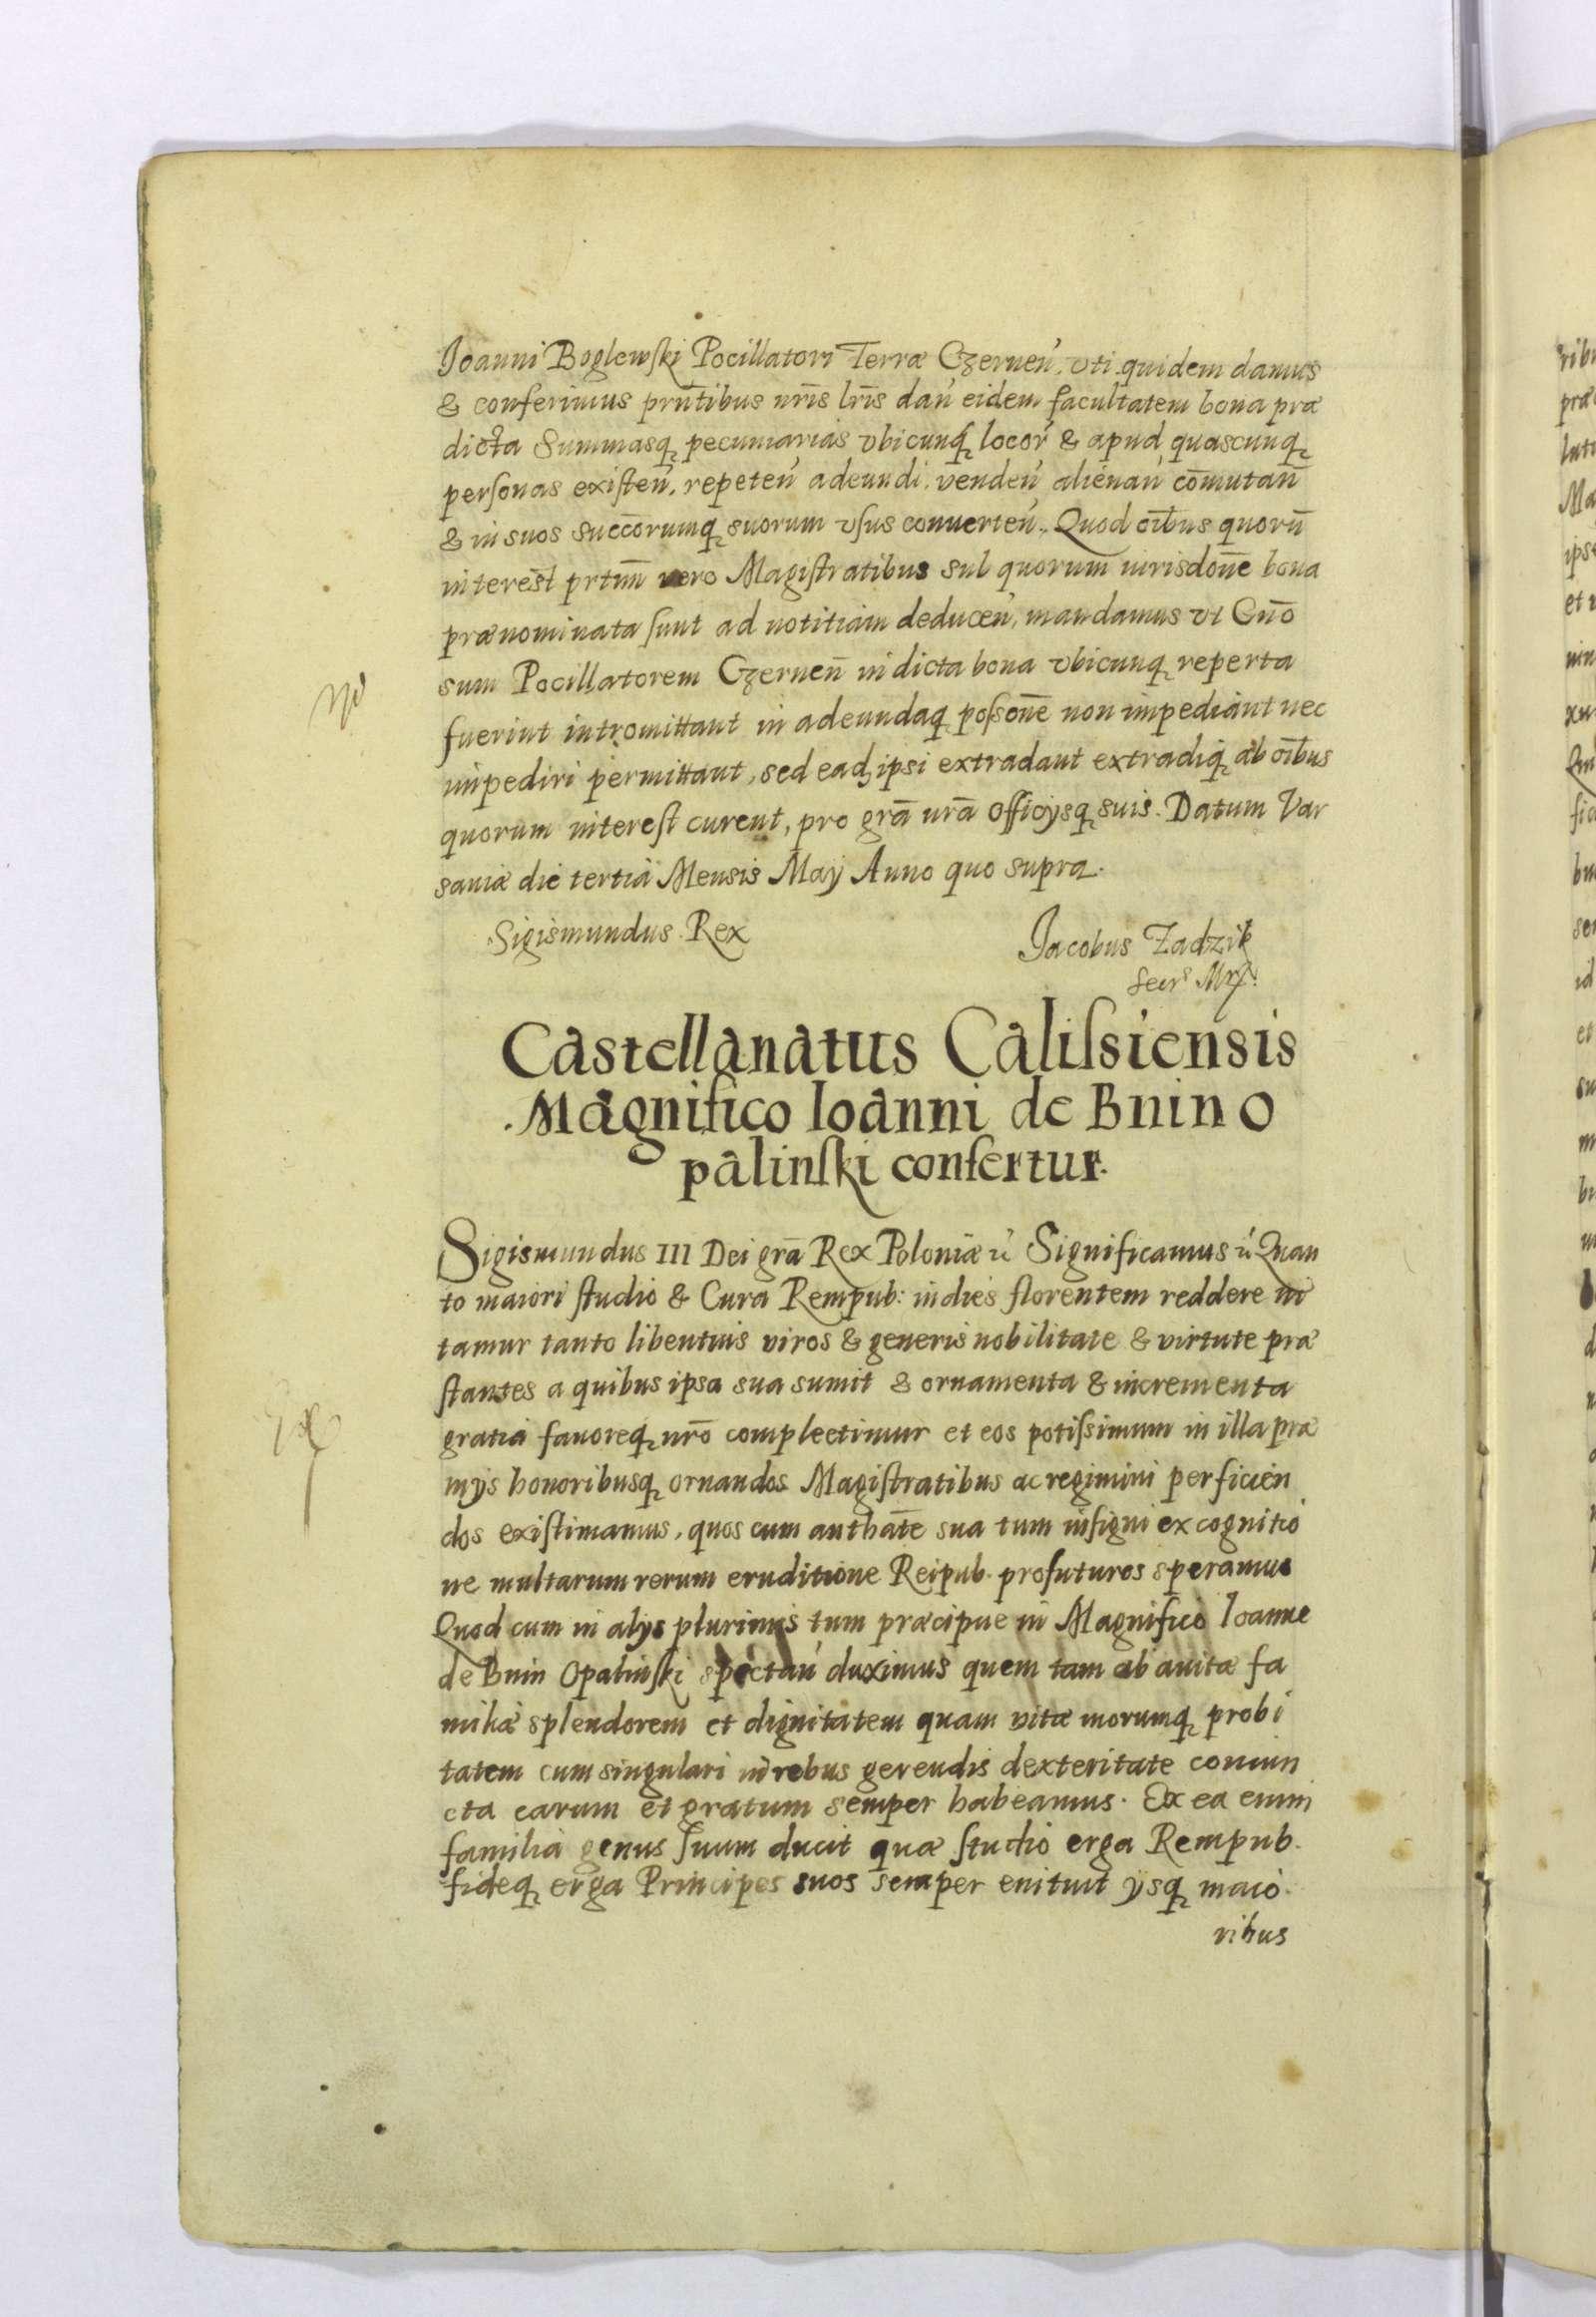 Joanni Boglewſki Pocillatori Terræ Czernen̄. vti quidem damus
& conferimus prn̄tibus nr̄is lr̄is dan̄ eidem facultatem bona præ
dicta Summasq; pecuniarias vbicunq; locor̄ & apud quascunq;
perſonas exiſten̄. repeten̄ adeundi. venden̄ alienan̄ com̄utan̄
& in suos succōrumq; suorum vſus conuerten̄. Quod oībus quorū
intereſt prtim̄ vero Magiſtratibus sub quorum iurisdōne bona
prænominata ſunt ad notitiam deducen̄, mandamus vt Gnō
sum Pocillatorem Czernen̄ in dicta bona vbicunq; reperta
fuerint intromittant in adeundaq; poſsōne non impediant nec
impediri permittant, sed eadz ipsi extradant extradiq; ab oībus
quorum intereſt curent, pro grā nrā officijsq; suis. Datum Var
sauiæ die tertia Mensis Maÿ Anno quo supra.
Sigismundus Rex
Jacobus Zadzik
Secrs
Castellanatus Caliſsiensis
Magnifico Ioanni de Bnin O
palinſki confertur.
Sigismundus III Dei grā Rex Poloniæ ꝛc̄ Significamus ꝛc̄ Quan
to maiori ſtudio & Cura Rempub: indies florentem reddere ni
tamur tanto libentius viros & generis nobilitate & virtute præ
ſtantes a quibus ipsa sua sumit & ornamenta & incrementa
gratia fauoreq; nr̄o complectimur et eos potiſsimum in illa præ
mijs honoribusq; ornandos Magiſtratibus ac regimini perficien
dos exiſtimamus, quos cum authāte sua tum inſigni ex cognitio
ne multarum rerum eruditione Reipub. profuturos speramus
Quod cum in alijs plurimis tum præcipue in Magnifico Ioanne
de Bnin Opalinſki spectan̄ duximus quem tam ab auitæ fa
miliæ splendorem et dignitatem quam vitæ morumq; probi
tatem cum singulari in rebus gerendis dexteritate coniun
cta carum et gratum semper habeamus. Ex ea enim
familia genus ſuum ducit quæ ſtudio erga Rempub.
fideq; erga Principes suos semper enituit ijsq; maio
ribus